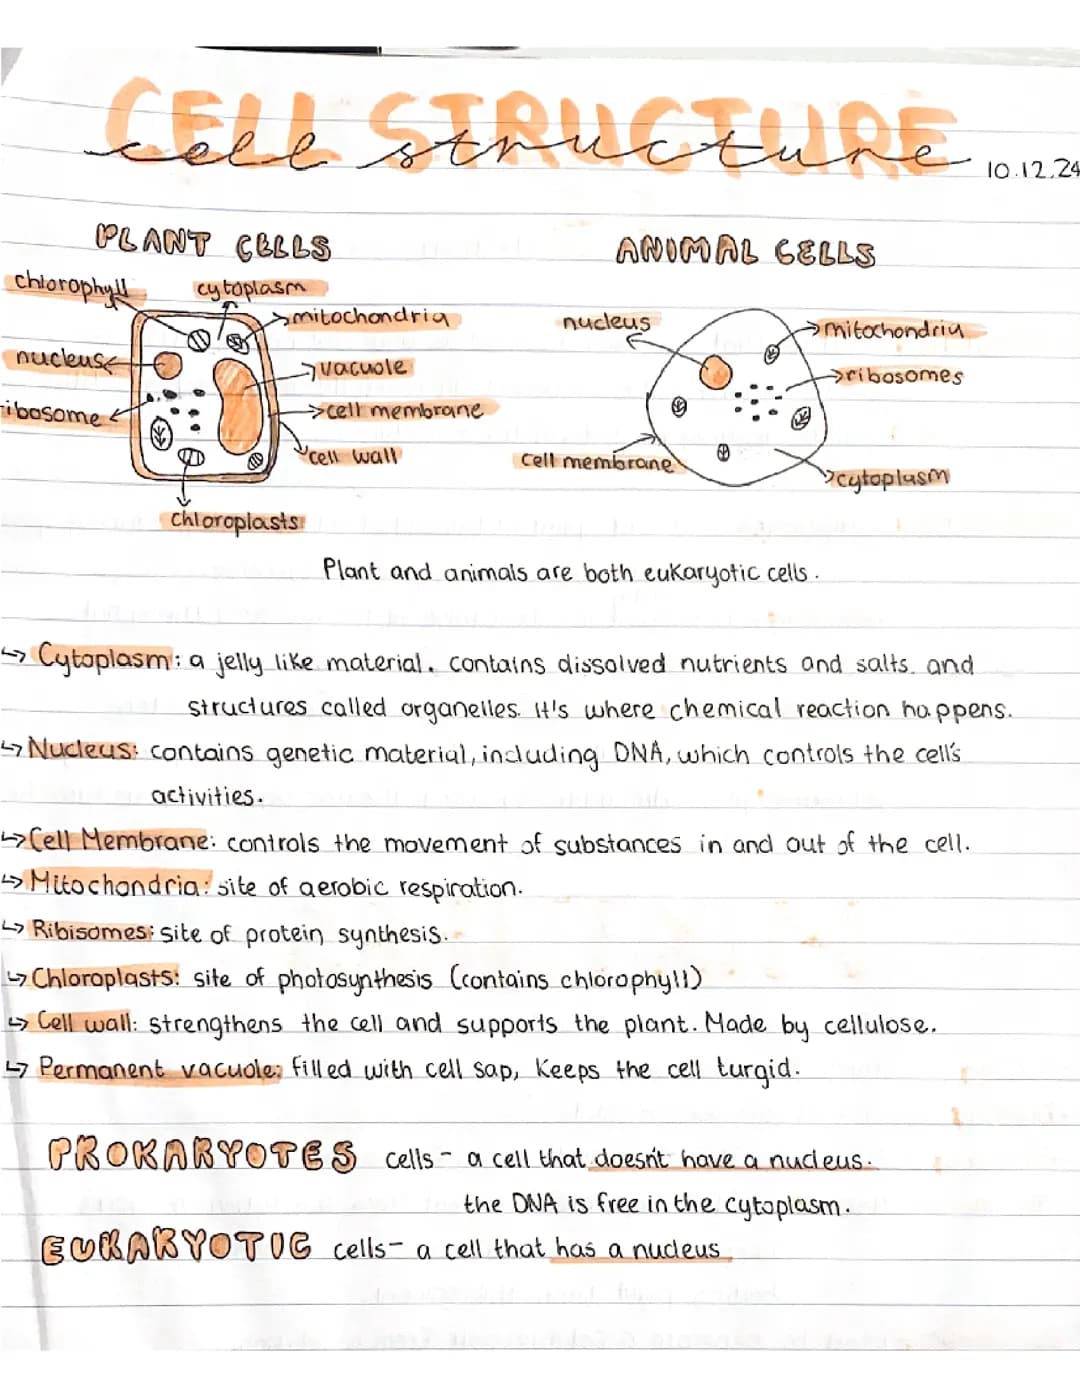 CELL STRUCTURE
cell structure
10.12.24
PLANT CELLS
ANIMAL CELLS
chlorophyll
cytoplasm
mitochondria
nucleus
vacuole
ribosome
cell membrane
cell wall
chloroplasts
nucleus
mitochondria
ribosomes
cell membrane
cytoplasm
Plant and animals are both eukaryotic cells.
↳ Cytoplasm: a jelly like material. contains dissolved nutrients and salts. and
structures called organelles. It's where chemical reaction happens.
↳ Nucleus: contains genetic material, including DNA, which controls the cell's
activities.
↳ Cell Membrane: controls the movement of substances in and out of the cell.
↳ Mitochondria: site of aerobic respiration.
↳ Ribisomes: site of protein synthesis.
↳ Chloroplasts: site of photosynthesis (contains chlorophyll)
↳ Cell wall: strengthens the cell and supports the plant. Made by cellulose.
↳ Permanent vacuole: filled with cell sap, Keeps the cell turgid.
PROKARYOTES cells - a cell that doesn't have a nucleus.
the DNA is free in the cytoplasm.
EUKARYOTIC cells - a cell that has a nucleus